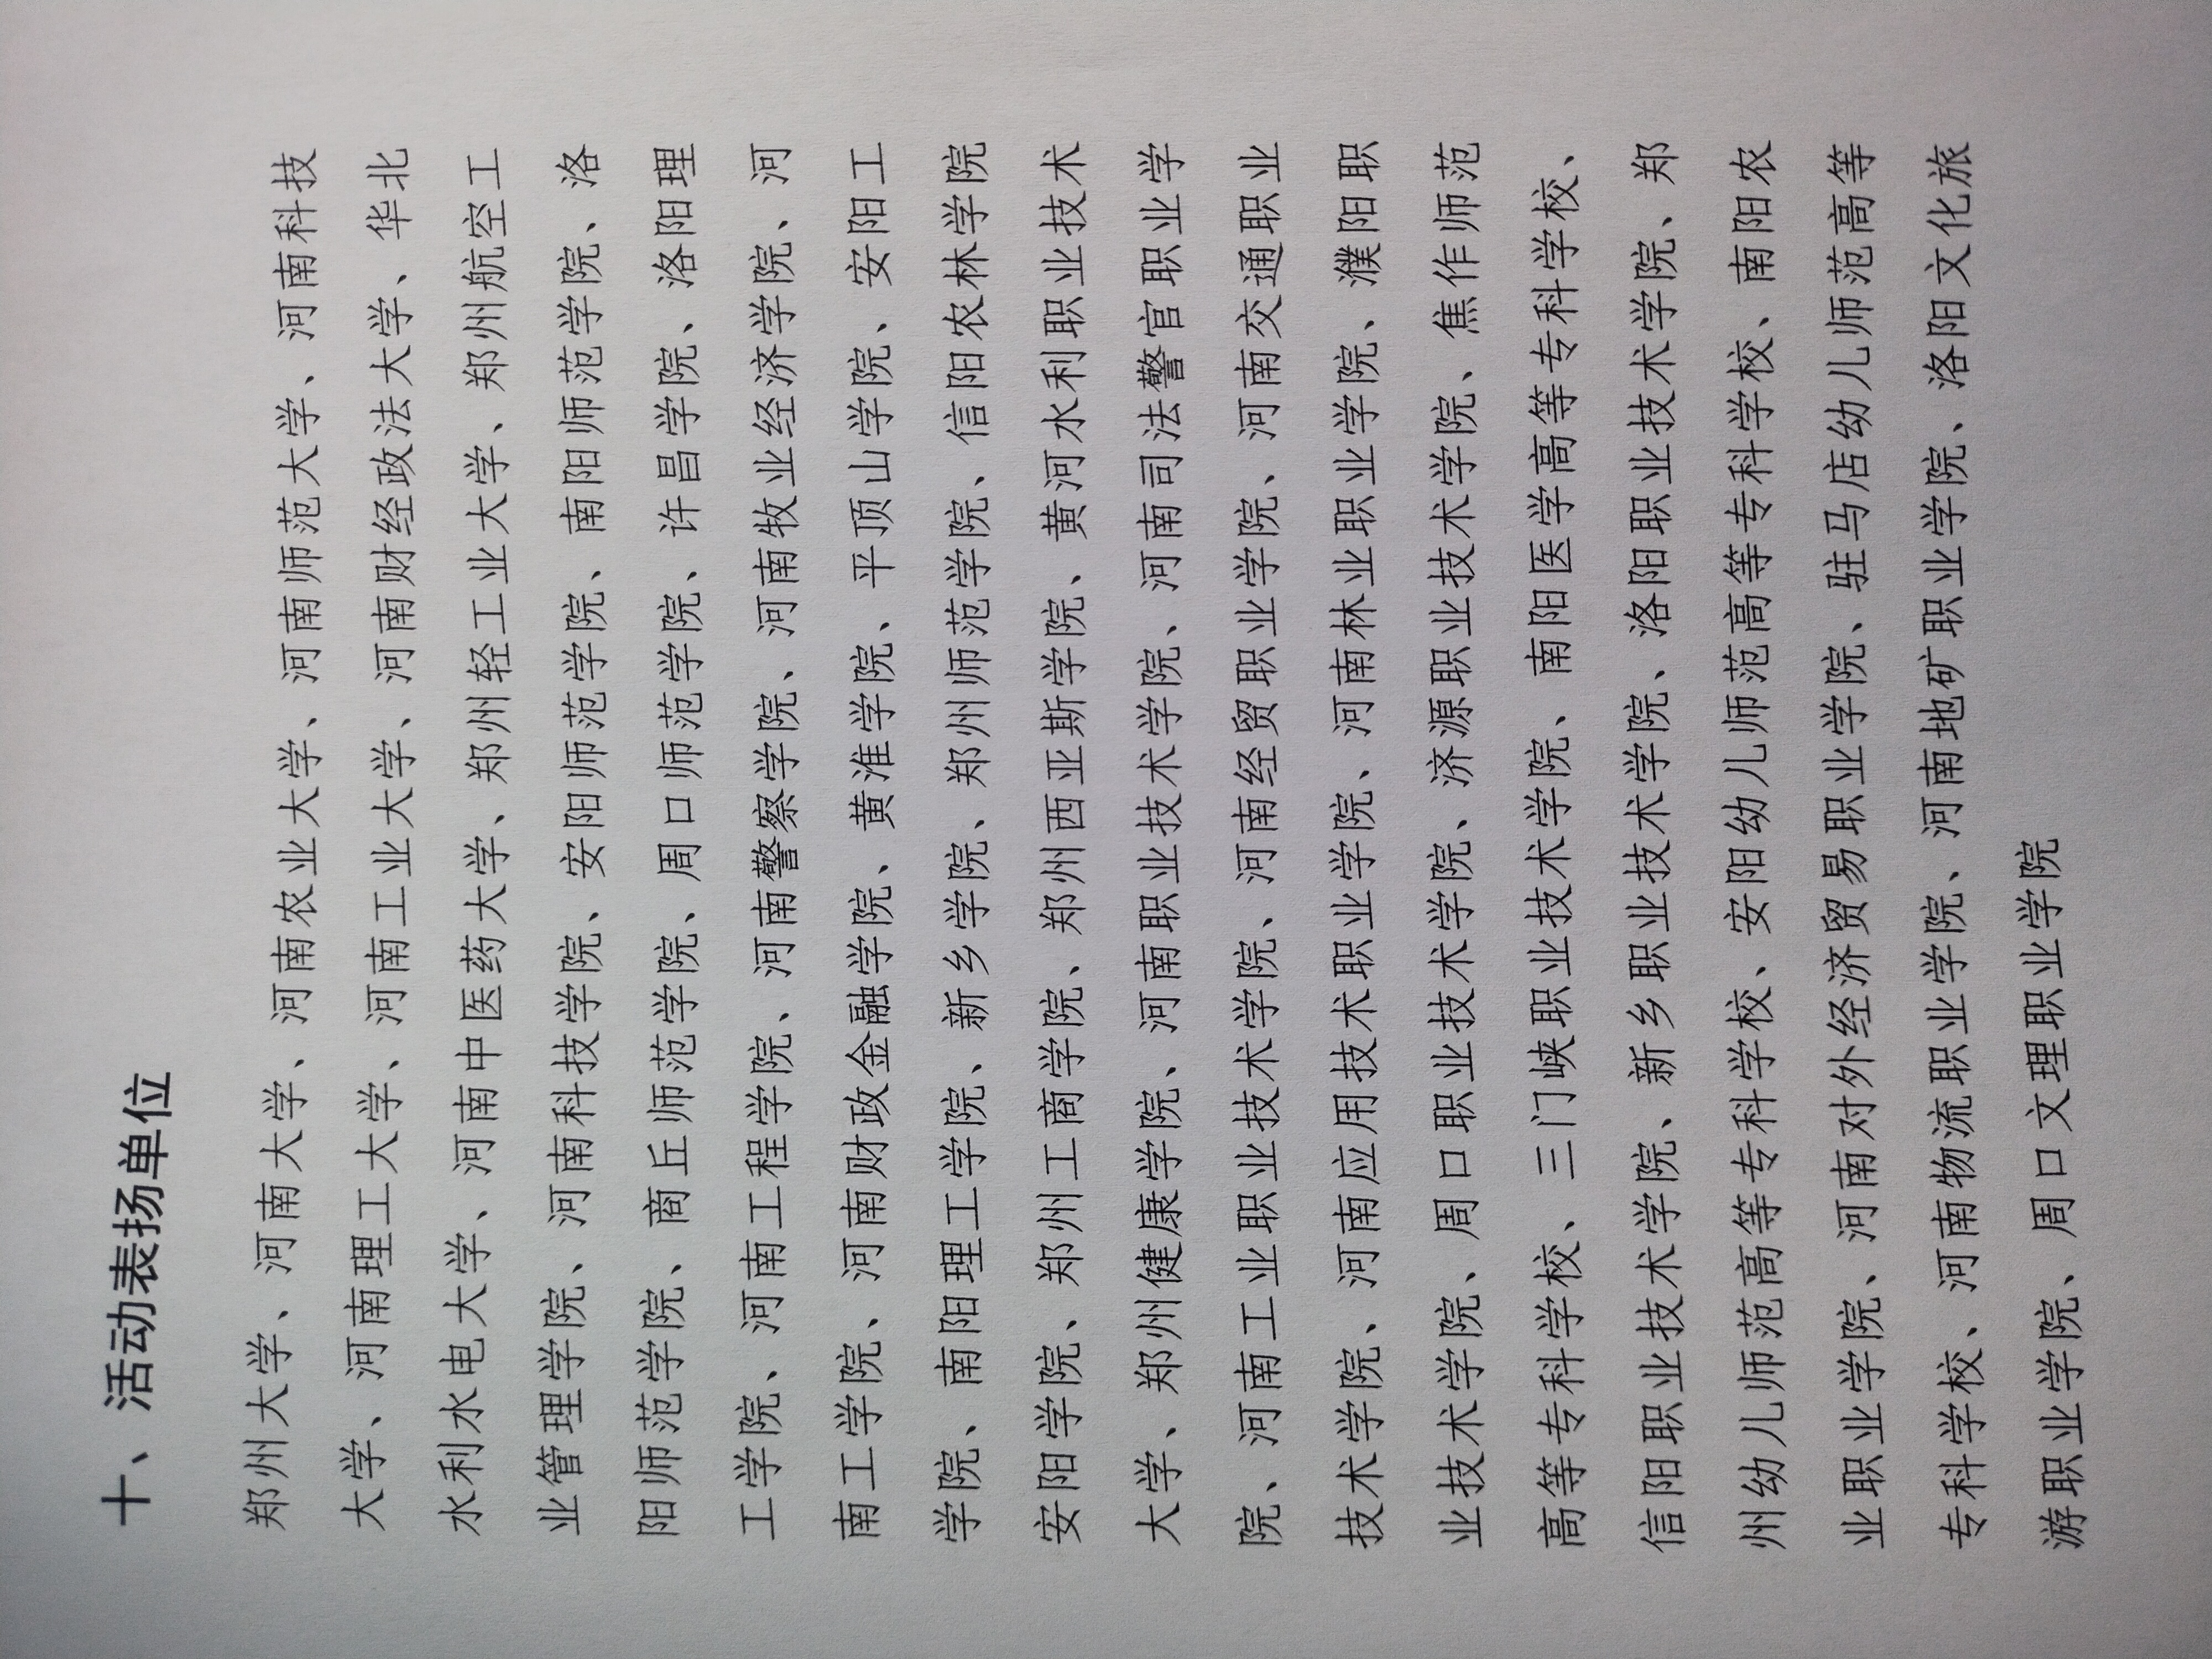 十、活动表扬单位
郑州大学、河南大学、河南农业大学、河南师范大学、河南科技
大学、河南理工大学、河南工业大学、河南财经政法大学、华北
水利水电大学、河南中医药大学、郑州轻工业大学、郑州航空工
业管理学院、河南科技学院、安阳师范学院、南阳师范学院、洛
阳师范学院、商丘师范学院、周口师范学院、许昌学院、洛阳理
工学院、河南工程学院、河南警察学院、河南牧业经济学院、河
南工学院、河南财政金融学院、黄淮学院、平顶山学院、安阳工
学院、南阳理工学院、新乡学院、郑州师范学院、信阳农林学院
安阳学院、郑州工商学院、郑州西亚斯学院、黄河水利职业技术
大学、郑州健康学院、河南职业技术学院、河南司法警官职业学
院、河南工业职业技术学院、河南经贸职业学院、河南交通职业
技术学院、河南应用技术职业学院、河南林业职业学院、濮阳职
业技术学院、周口职业技术学院、济源职业技术学院、焦作师范
高等专科学校、三门峡职业技术学院、南阳医学高等专科学校、
信阳职业技术学院、新乡职业技术学院、洛阳职业技术学院、郑
州幼儿师范高等专科学校、安阳幼儿师范高等专科学校、南阳农
业职业学院、河南对外经济贸易职业学院、驻马店幼儿师范高等
专科学校、河南物流职业学院、河南地矿职业学院、洛阳文化旅
游职业学院、周口文理职业学院